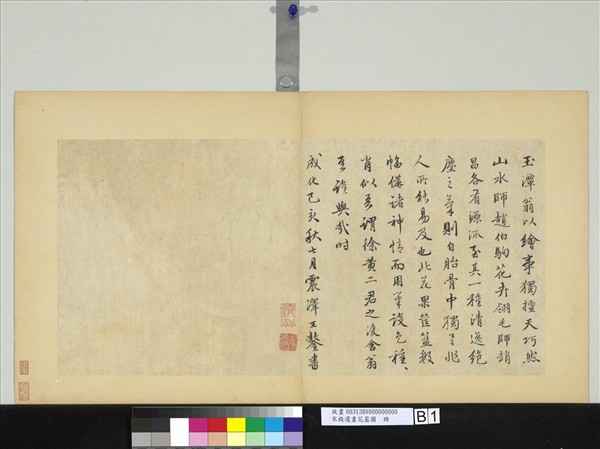 玉潭翁以繪事獨擅天巧然
山水師趙伯駒花卉翎毛師趙
昌各有源流至其一種清逸絕
塵之筆則自胎骨中獨非
人所能易及也此花果筐籃數
幅儘諸神情而用筆設色種、
肖似吾謂徐黃二君之後舍翁
吾誰與哉時
成化己亥秋七月震澤王鏊書
故畫 003138N000000000
宋錢選畫花籃圖
B1